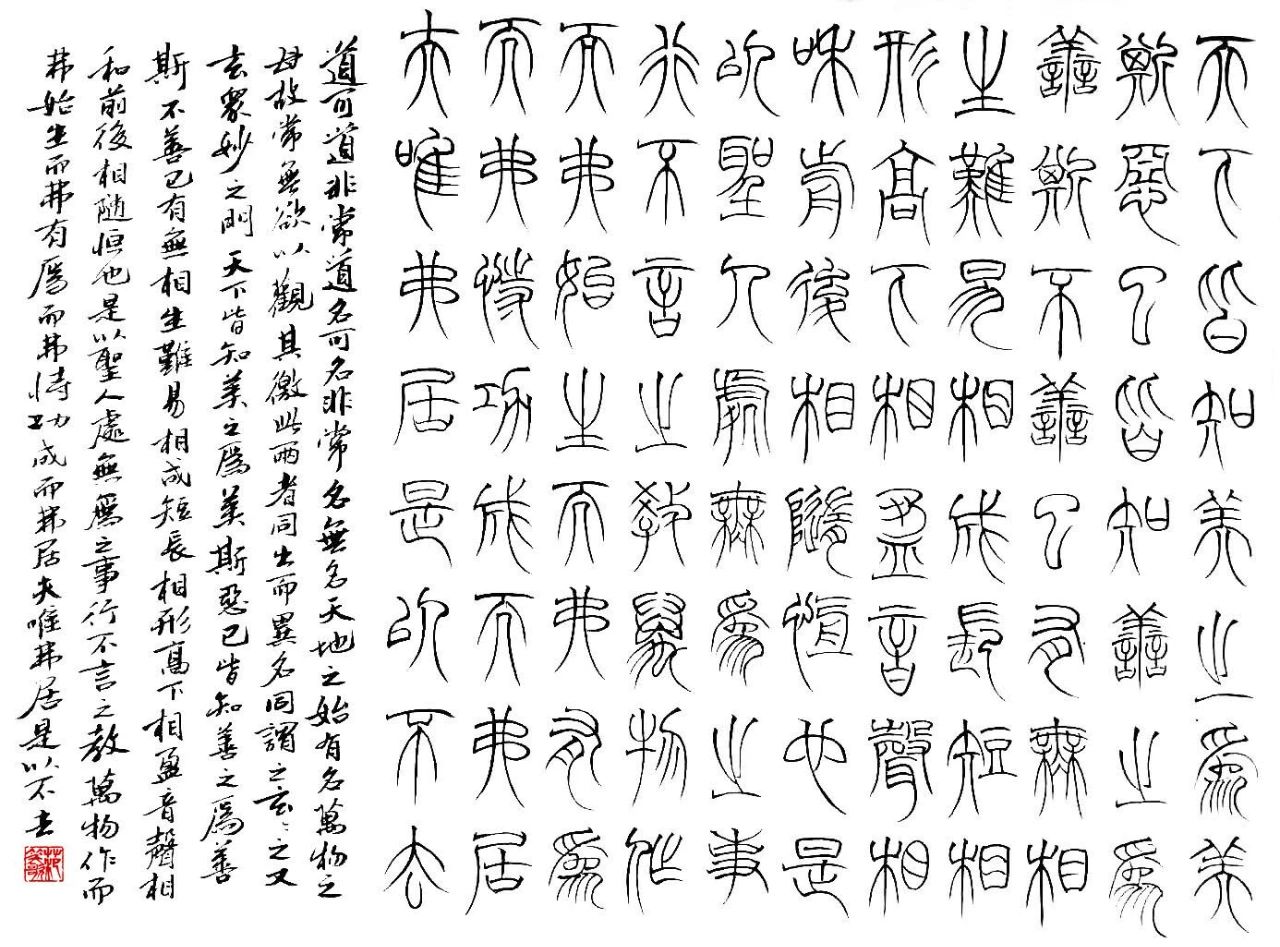 天下皆知美之爲美
斯惡已皆知善之爲
善斯不善已有無相
生難易相成長短相
形高下相盈音聲相
和前後相隨恒也是
以聖人處無爲之事
行不言之教萬物作
而弗始生而弗有爲
而弗恃功成而弗居
夫唯弗居是以不去
道可道非常道名可名非常名無名天地之始有名萬物之
母故常無欲以觀其徼此兩者同出而異名同謂之玄〻之又
玄眾妙之門 天下皆知美之爲美斯惡已皆知善之爲善
斯不善已有無相生難易相成短長相形高下相盈音聲相
和前後相隨恒也是以聖人處無爲之事行不言之教萬物作而
弗始生而弗有爲而弗恃功成而弗居夫唯弗居是以不去